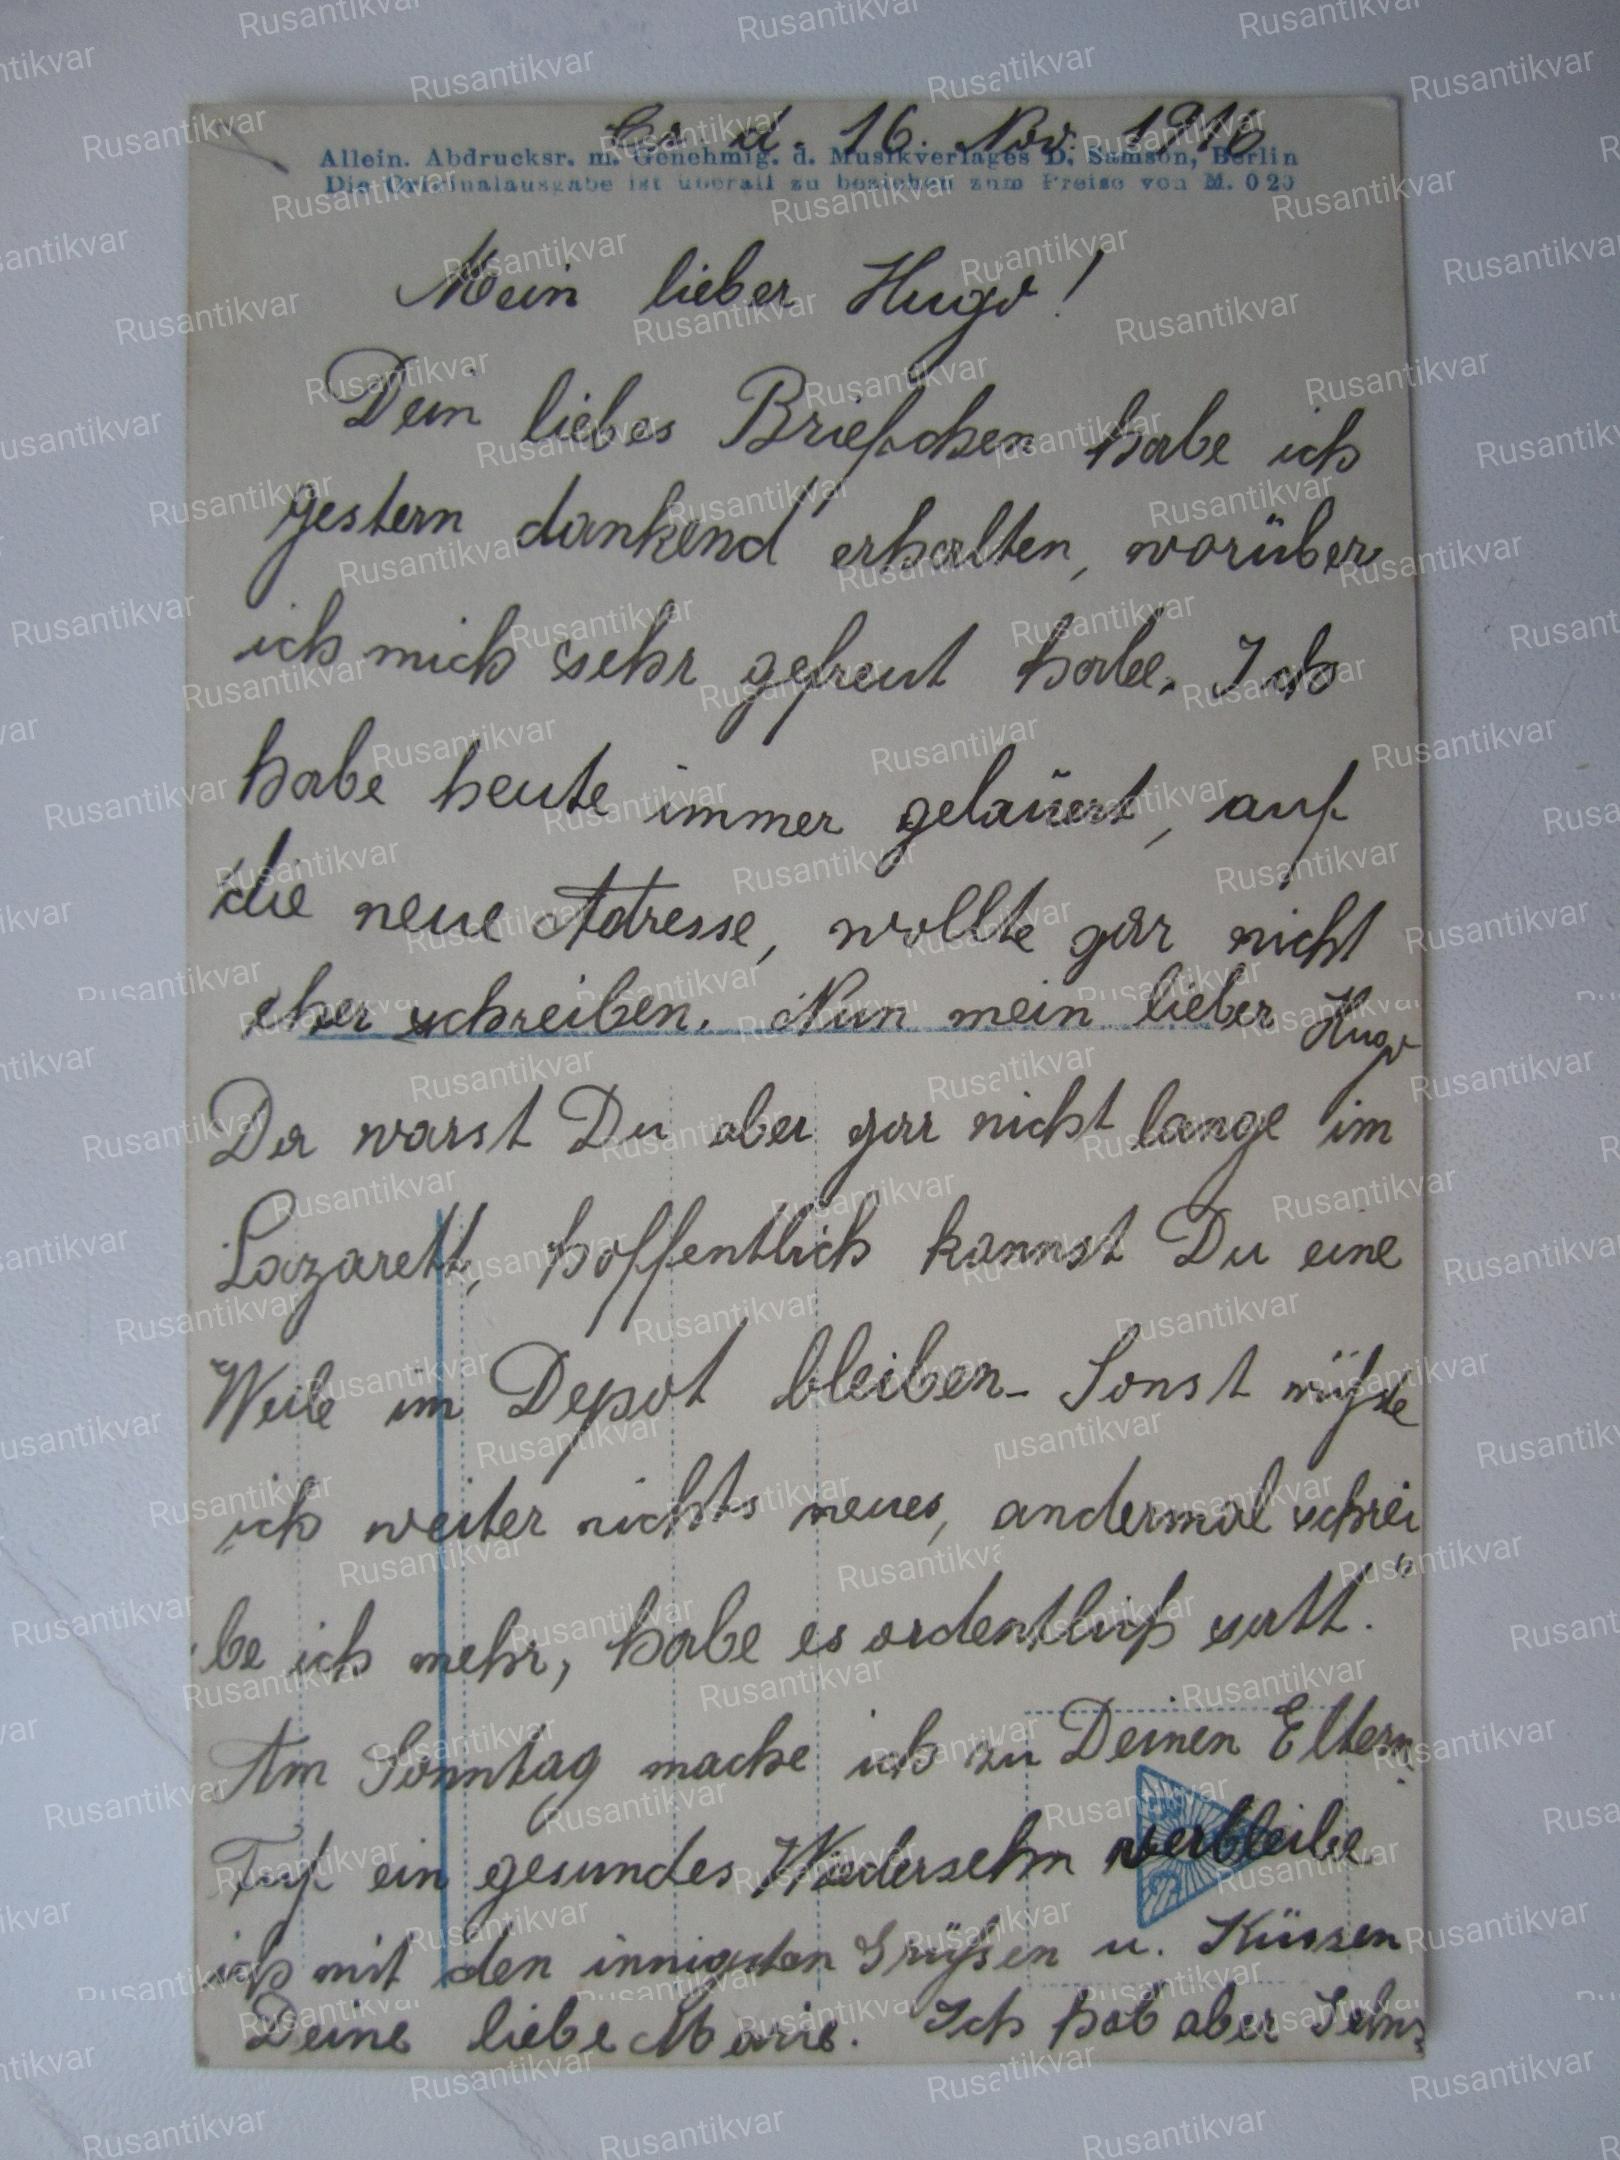 d. 16. Nov. 1916
Allein. Abdrucksr. m. Genehmig. d. Musikverlages D. Samson, Berlin
Die Originalausgabe ist überall zu beziehen zum Preise von M. 0 20
Mein lieber Hugo!
Dein liebes Briefchen habe ich
gestern dankend erhalten, worüber
ich mich sehr gefreut habe. Ich
habe heute immer gelauert, auf
die neue Adresse, wollte gar nicht
eher schreiben. Nun mein lieber Hugo
Da warst Du aber gar nicht lange im
Lazarett, hoffentlich kannst Du eine
Weile im Depot bleiben. Sonst wüßte
ich weiter nichts neues, andermal schrei
be ich mehr, habe es ordentlich satt."
Am Sonntag mache ich zu Deinen Eltern.
Auf ein gesundes Wiedersehn verbleibe
ich mit den innigsten Grüßen u. Küssen
Deine liebe Marie. Ich hab aber Sehns
Rusantikvar